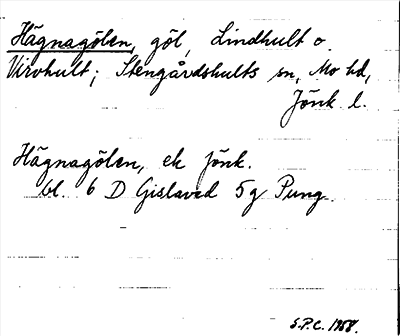 Hägnagölen, göl, Lindhult o.
Virvhult; Stengårdshults sn, Mo hd,
Jönk l.
Hägnagölen, ek Jönk.
bl. 6 D Gislaved 5g Pung.
S.P.C. 1958.